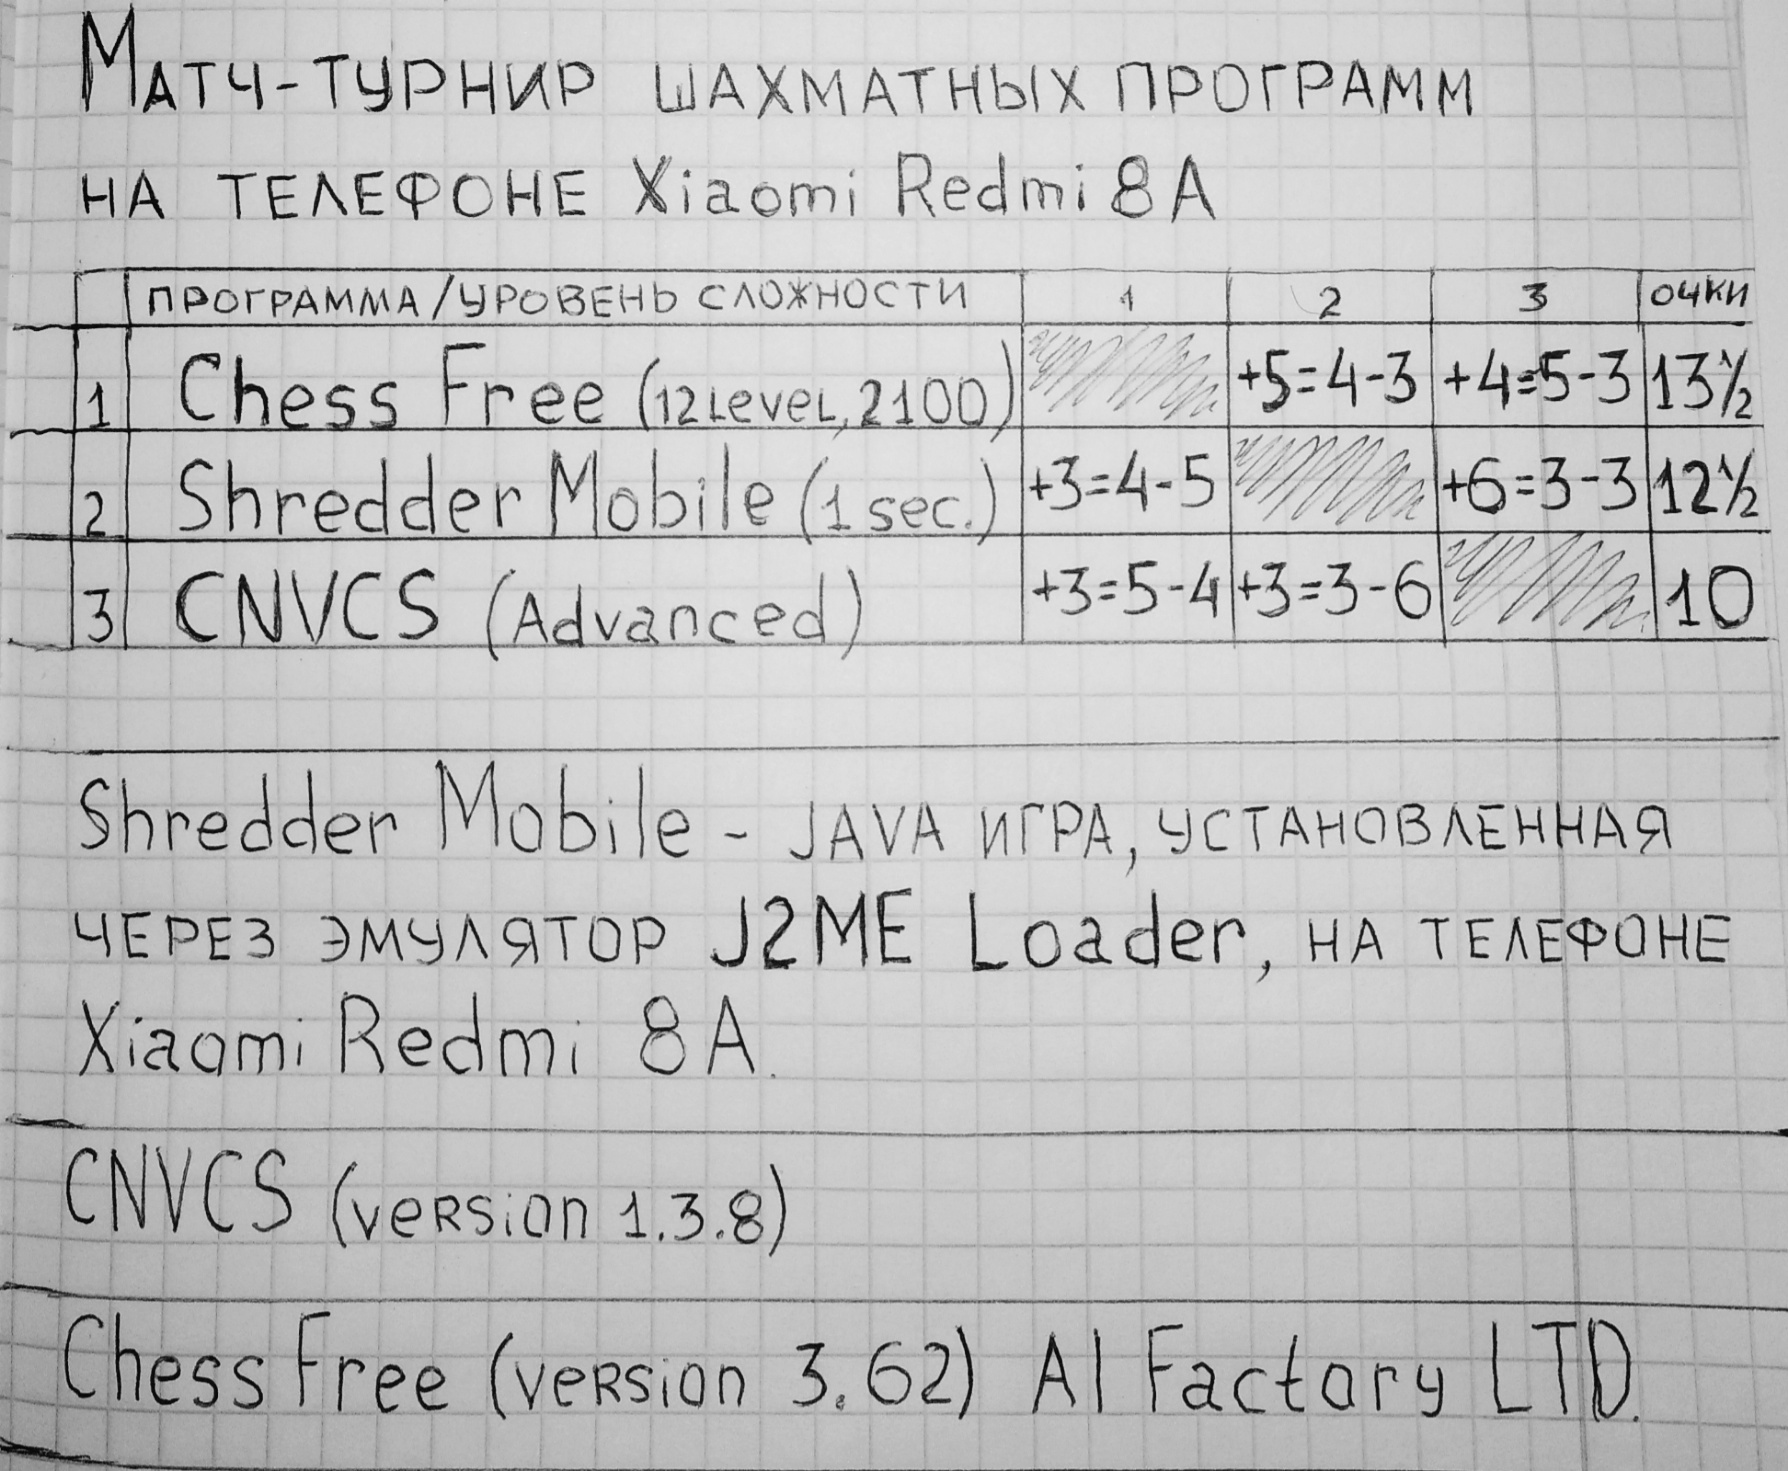 Матч-турнир шахматных программ
на телефоне Xiaomi Redmi 8A
программа/уровень сложности 1 2 3 очки
1 Chess Free (12 Level, 2100) +5=4-3 +4=5-3 13½
2 Shredder Mobile (1 sec.) +3=4-5 +6=3-3 12½
3 CNVCS (Advanced) +3=5-4 +3=3-6 10
Shredder Mobile - JAVA игра, установленная
через эмулятор J2ME Loader, на телефоне
Xiaomi Redmi 8A.
CNVCS (version 1.3.8)
Chess Free (version 3.62) AI Factory LTD.